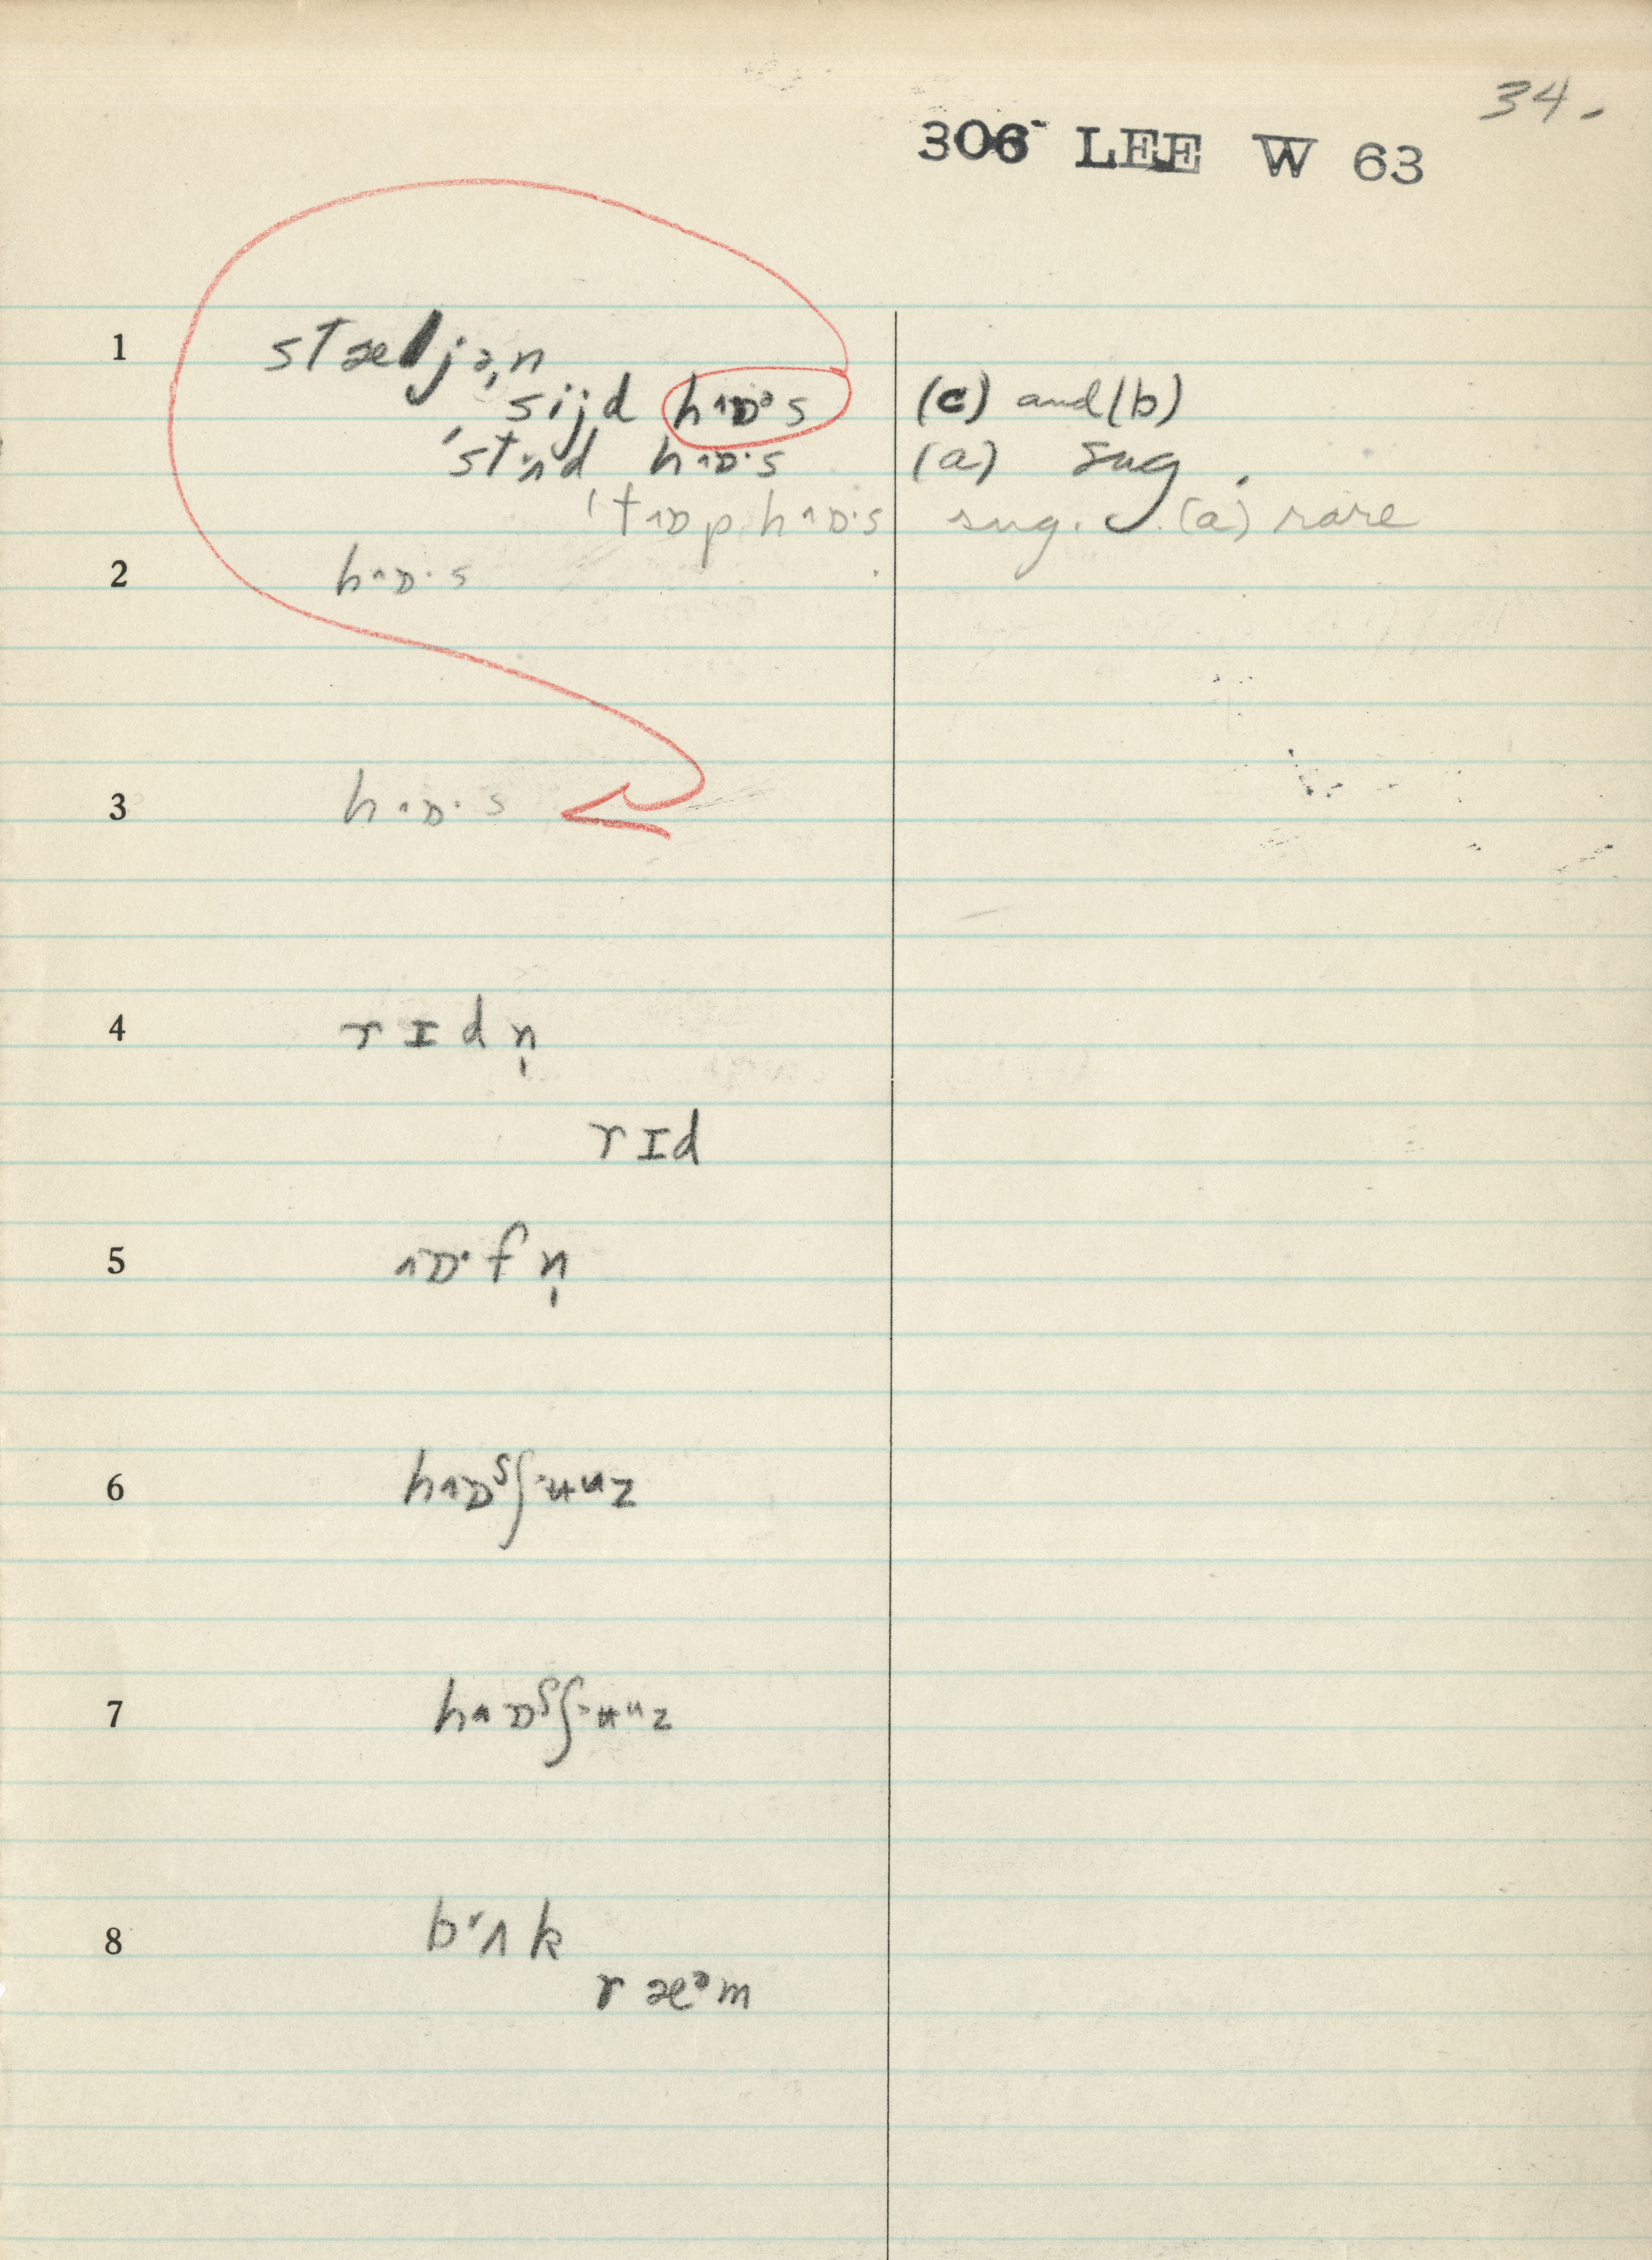 34.
306 LEE W 63
1 stæljə̩n
sijd hɒˑs (c) and (b)
ˈstʌd hɒˑs (a) sug.
ˈtɒp hɒˑs sug. (a) rare
2 hɒˑs
3 hɒˑs
4 rɪdn̩
rɪd
5 ɒˑfn̩
6 hɒˢʃʉᵘz
7 hɒˢʃʉᵘz
8 bʌk
ræᵊm